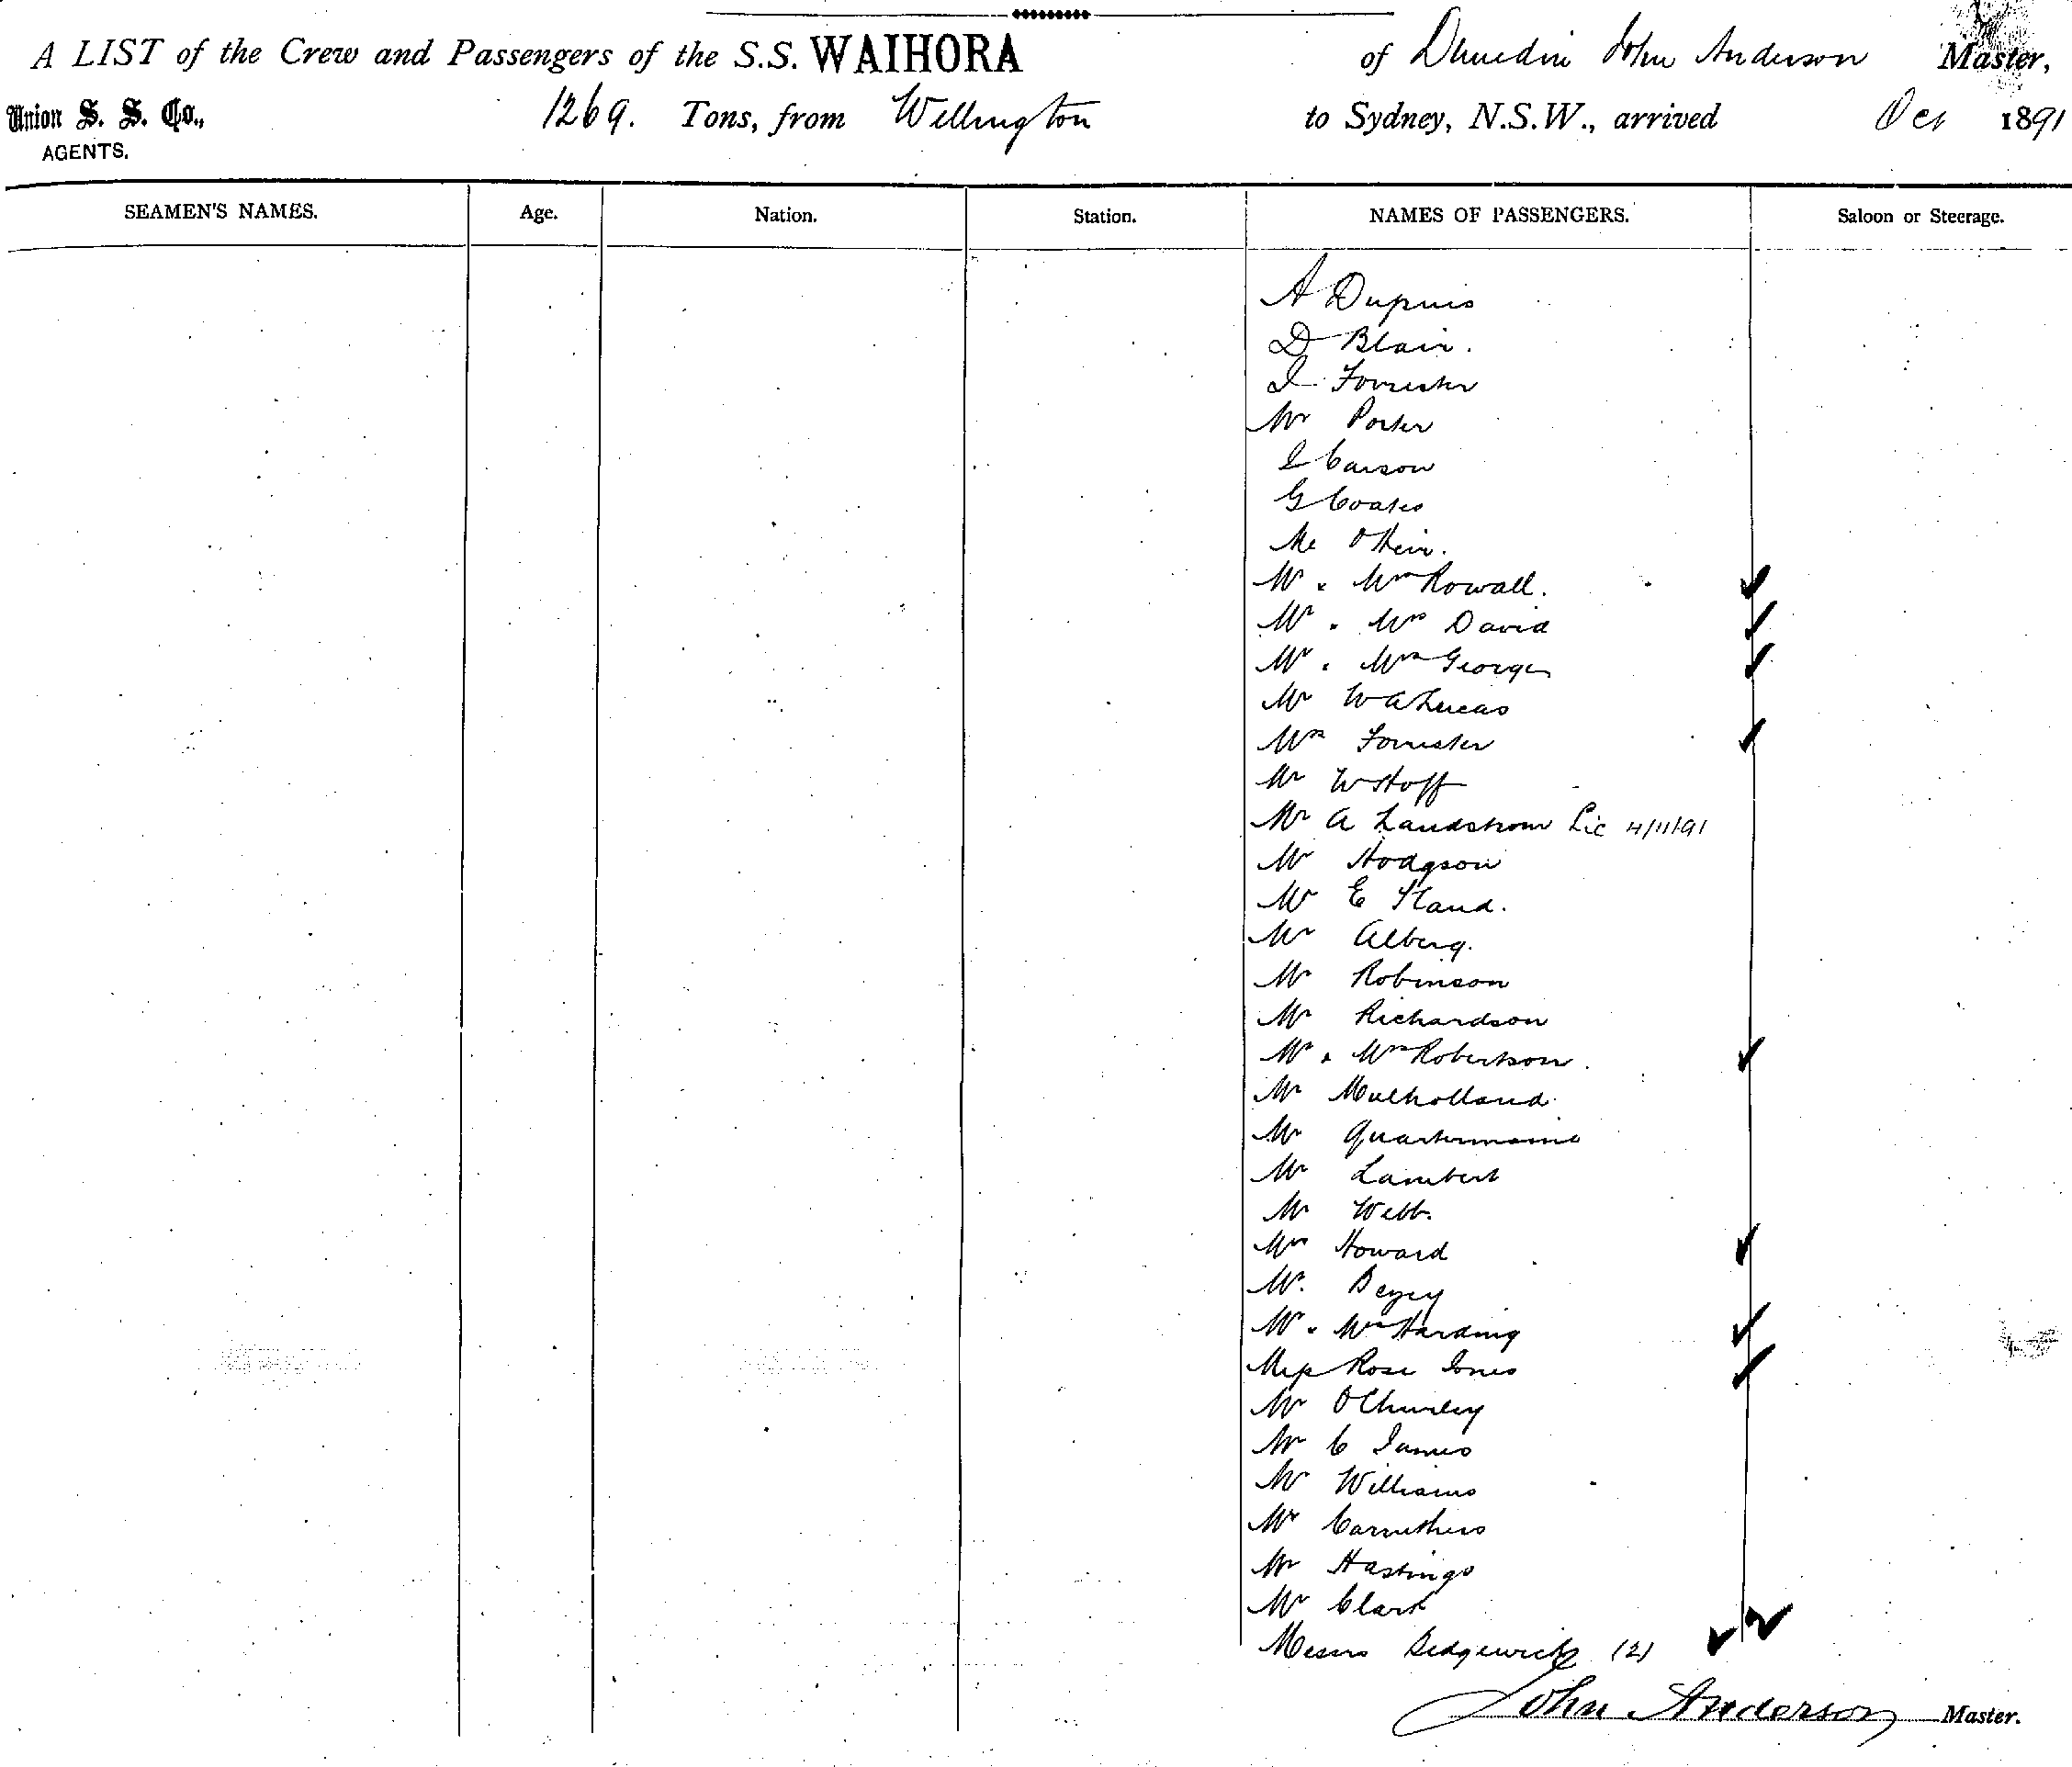 A LIST of the Crew and Passengers of the S.S. WAIHORA of Dunedin John Anderson Master,
Union S. S. Co., 1269. Tons, from Wellington to Sydney, N.S.W., arrived Oct 1891
AGENTS.
SEAMEN'S NAMES. Age. Nation. Station. NAMES OF PASSENGERS. Saloon or Steerage.
A Dupuis
D Blair.
J Forrester
Mr Porter
J Carson
G Coates
Mr
Mr & Mrs Rowall.
Mr & Mrs David
Mr & Mrs George
Mr W A Lucas
Mrs Forrester
Mr W Hoff
Mr A Landstrom Lic 4/11/91
Mr Hodgson
Mr E Hand.
Mr Alberg.
Mr Robinson
Mr Richardson
Mr & Mrs Robertson.
Mr Mulholland
Mr Quartermaine
Mr Lambert
Mr Webb.
Mrs Howard
Mr
Mr & Mrs Harding
Miss Rose Jones
Mr
Mr C James
Mr Williams
Mr Carruthers
Mr Hastings
Mr Clark
Messrs Sedgewick (2)
John Anderson Master.